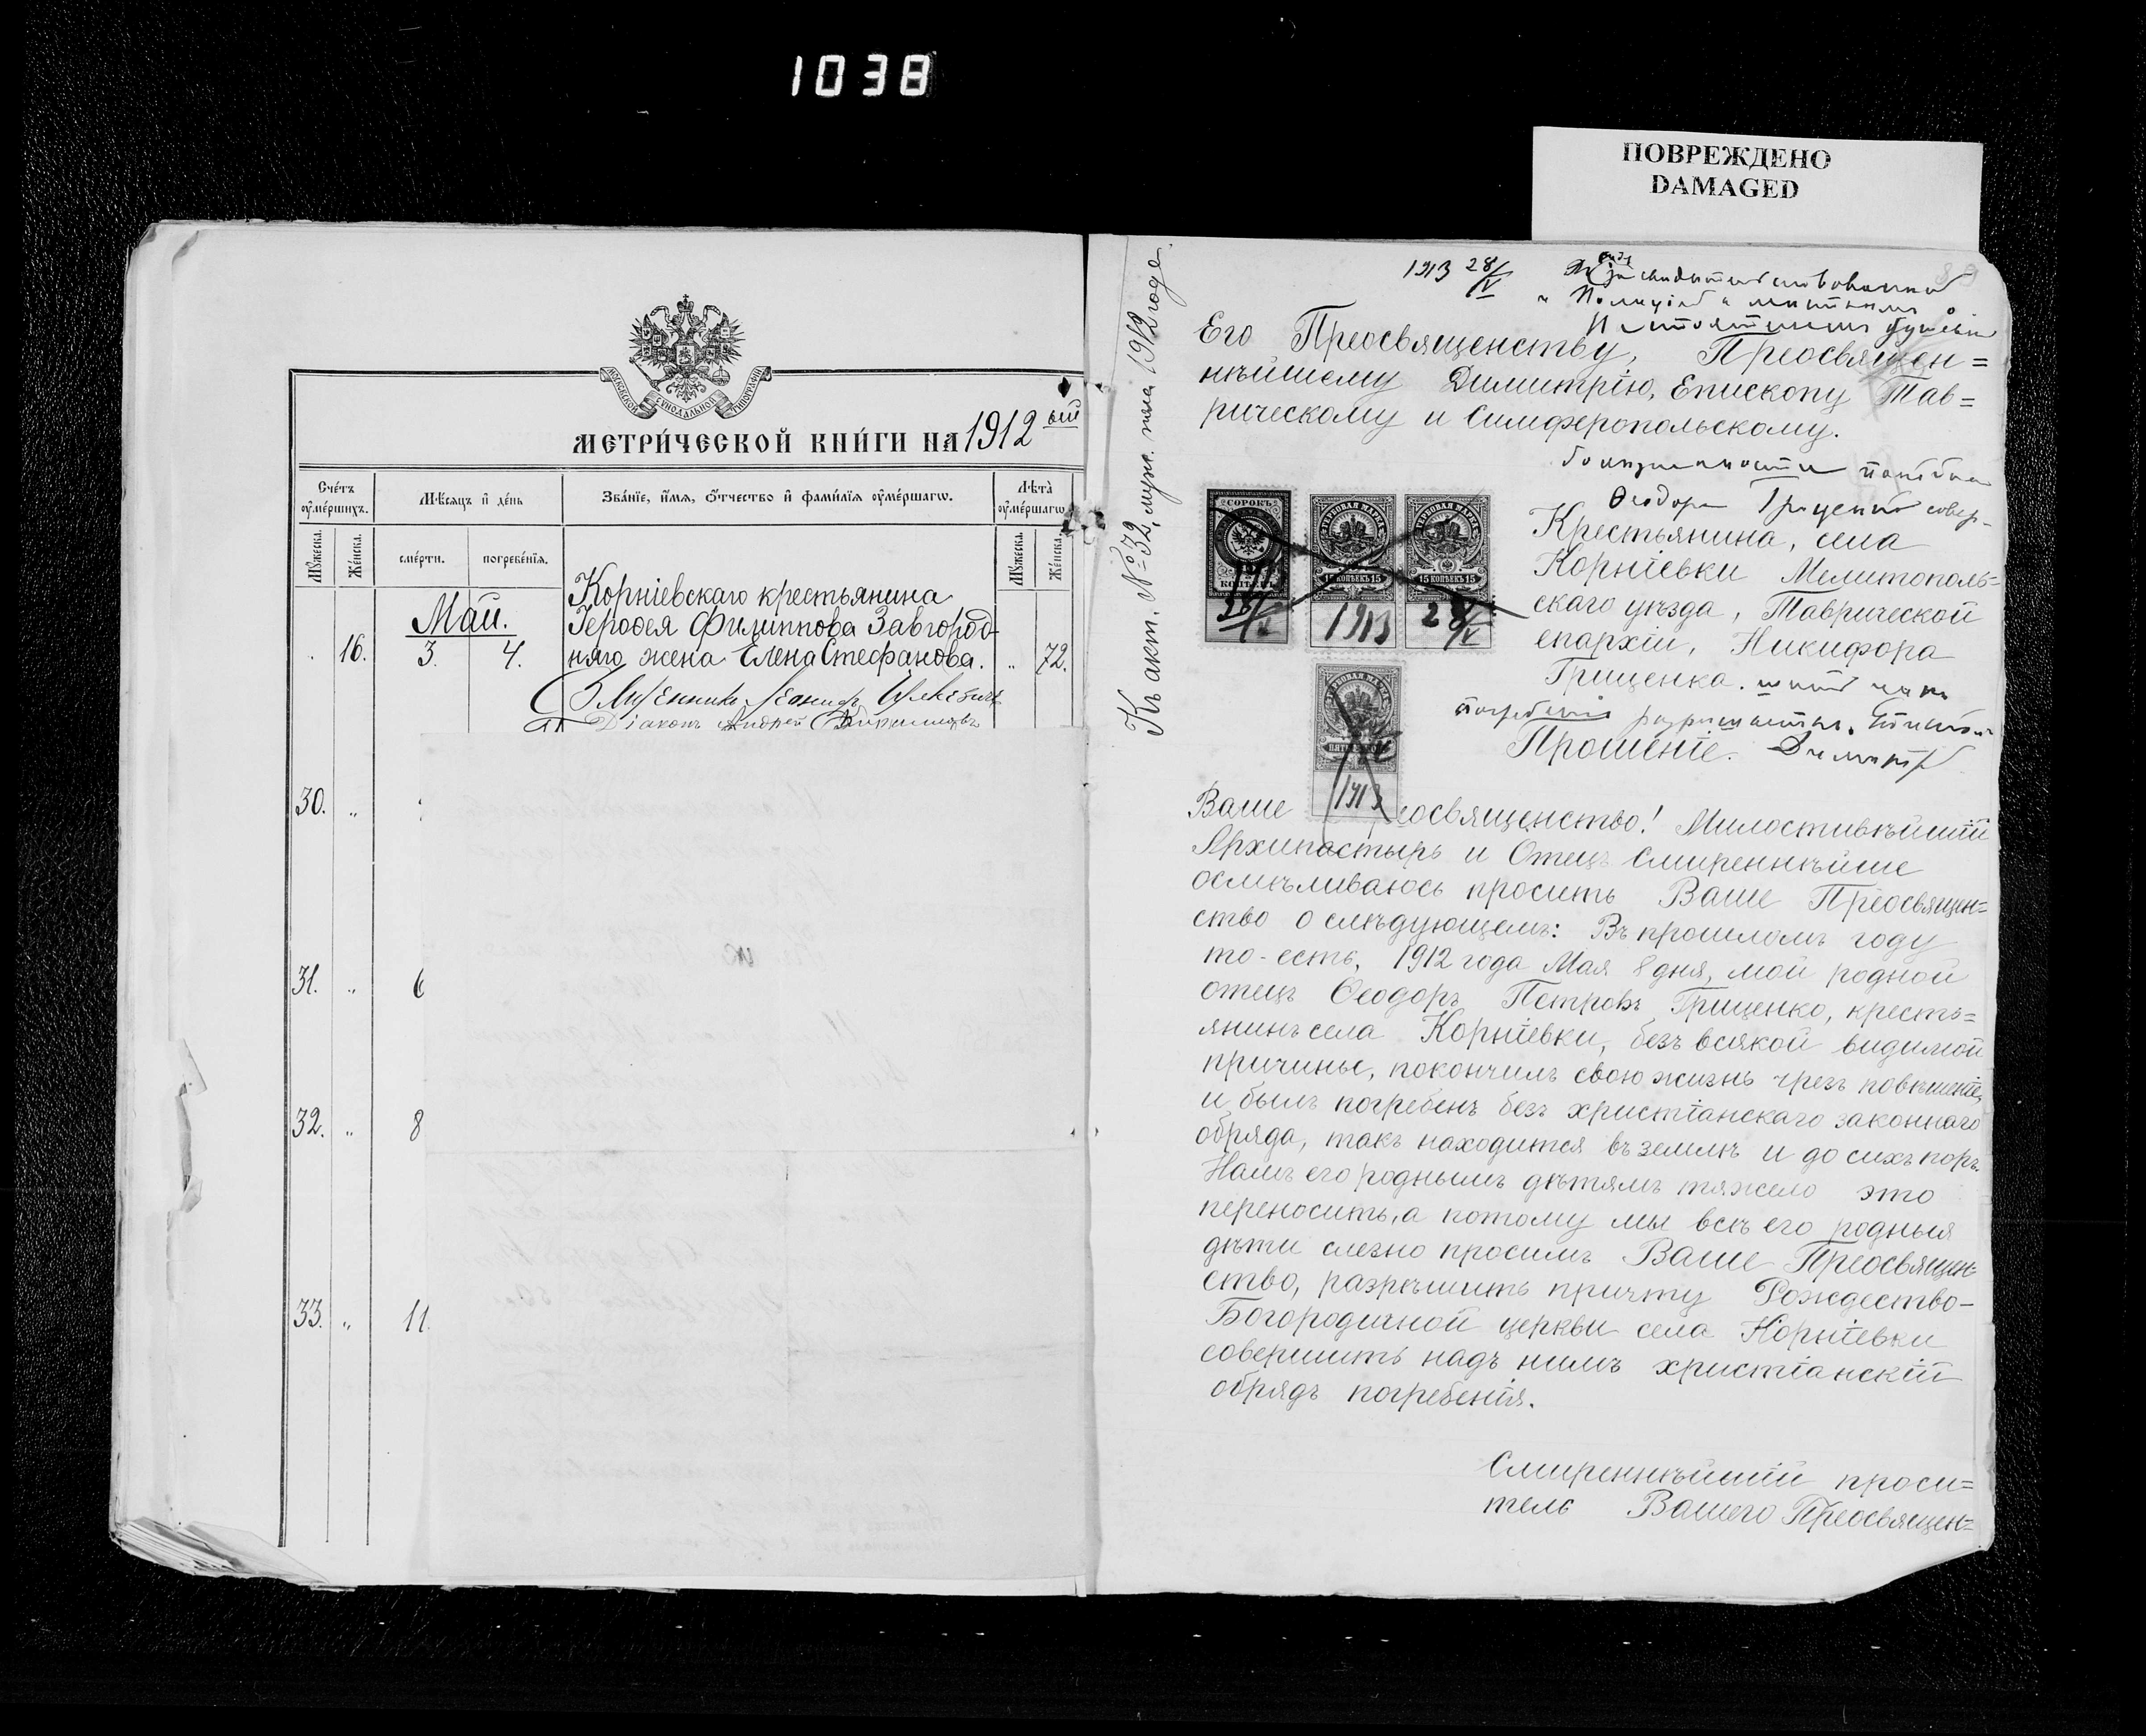 1038
ПОВРЕЖДЕНО
DAMAGED
МОСКОВСКОЙ СѴНОДАЛЬНОЙ ТИПОГРАФІИ
МЕТРИ́ЧЕСКОЙ КНИ́ГИ НА 1912 ый
Сче́тъ ᲂу҆ме́ршихъ.
Мѣ́сяцъ и҆ де́нь
Зва́нїе, и҆́мѧ, ѻ҆́тчество и҆ фами́лїѧ ᲂу҆ме́ршагѡ.
Лѣта̀ ᲂу҆ме́ршагѡ
Мꙋ́жеска.
Же́нска.
сме́рти.
погребе́нїѧ.
Мꙋ́жеска.
Же́нска.
Май.
Корніевскаго крестьянина
Іероѳея Филиппова Завгород-
16. 3. 4. няго жена Елена Стефанова. „ 72.
Священникъ Леонидъ
Діаконъ Андрей
30. „
31. „ 6
32. „ 8
33. „ 11.
Къ акт. № 32, муж. пола 1912 года.
1913 28/V
Его Преосвященству, Преосвящен=
нѣйшему Димитрію, Епископу Тав=
рическому и Симферопольскому.
Ѳеодора Гриценко совер-
СОРОКЪ
КОПѢЕКЪ
28/V
ГЕРБОВАЯ МАРКА
15 КОПѢЕКЪ 15
1913
ГЕРБОВАЯ МАРКА
15 КОПѢЕКЪ 15
28/V
ГЕРБОВАЯ МАРКА
1913
Крестьянина, села
Корніевки Мелитополь=
скаго уѣзда, Таврической
епархіи, Никифора
Гриценка.
погребенія разрѣшается.
Прошеніе. Димитр
Ваше еосвященство! Милостивѣйшій
Архипастырь и Отецъ Смиреннѣйше
осмѣливаюсь просить Ваше Преосвящен=
ство о слѣдующемъ: Въ прошломъ году
то-есть, 1912 года Мая 8 дня, мой родной
отецъ Ѳеодоръ Петровъ Гриценко, кресть=
янинъ села Корніевки, безъ всякой видимой
причины, покончилъ свою жизнь чрезъ повѣшеніе,
и былъ погребенъ безъ христіанскаго законнаго
обряда, такъ находится въ землѣ и до сихъ поръ.
Намъ его роднымъ дѣтямъ тяжело это
переносить, а потому мы всѣ его родныя
дѣти слезно просимъ Ваше Преосвящен-
ство, разрѣшить причту Рождество-
Богородичной церкви села Корніевки
совершить надъ нимъ христіанскій
обрядъ погребенія.
Смиреннѣйшій проси=
тель Вашего Преосвящен=